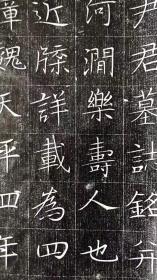 尹君墓誌銘并
河澗樂壽人也
近牒詳載為四
天平四年